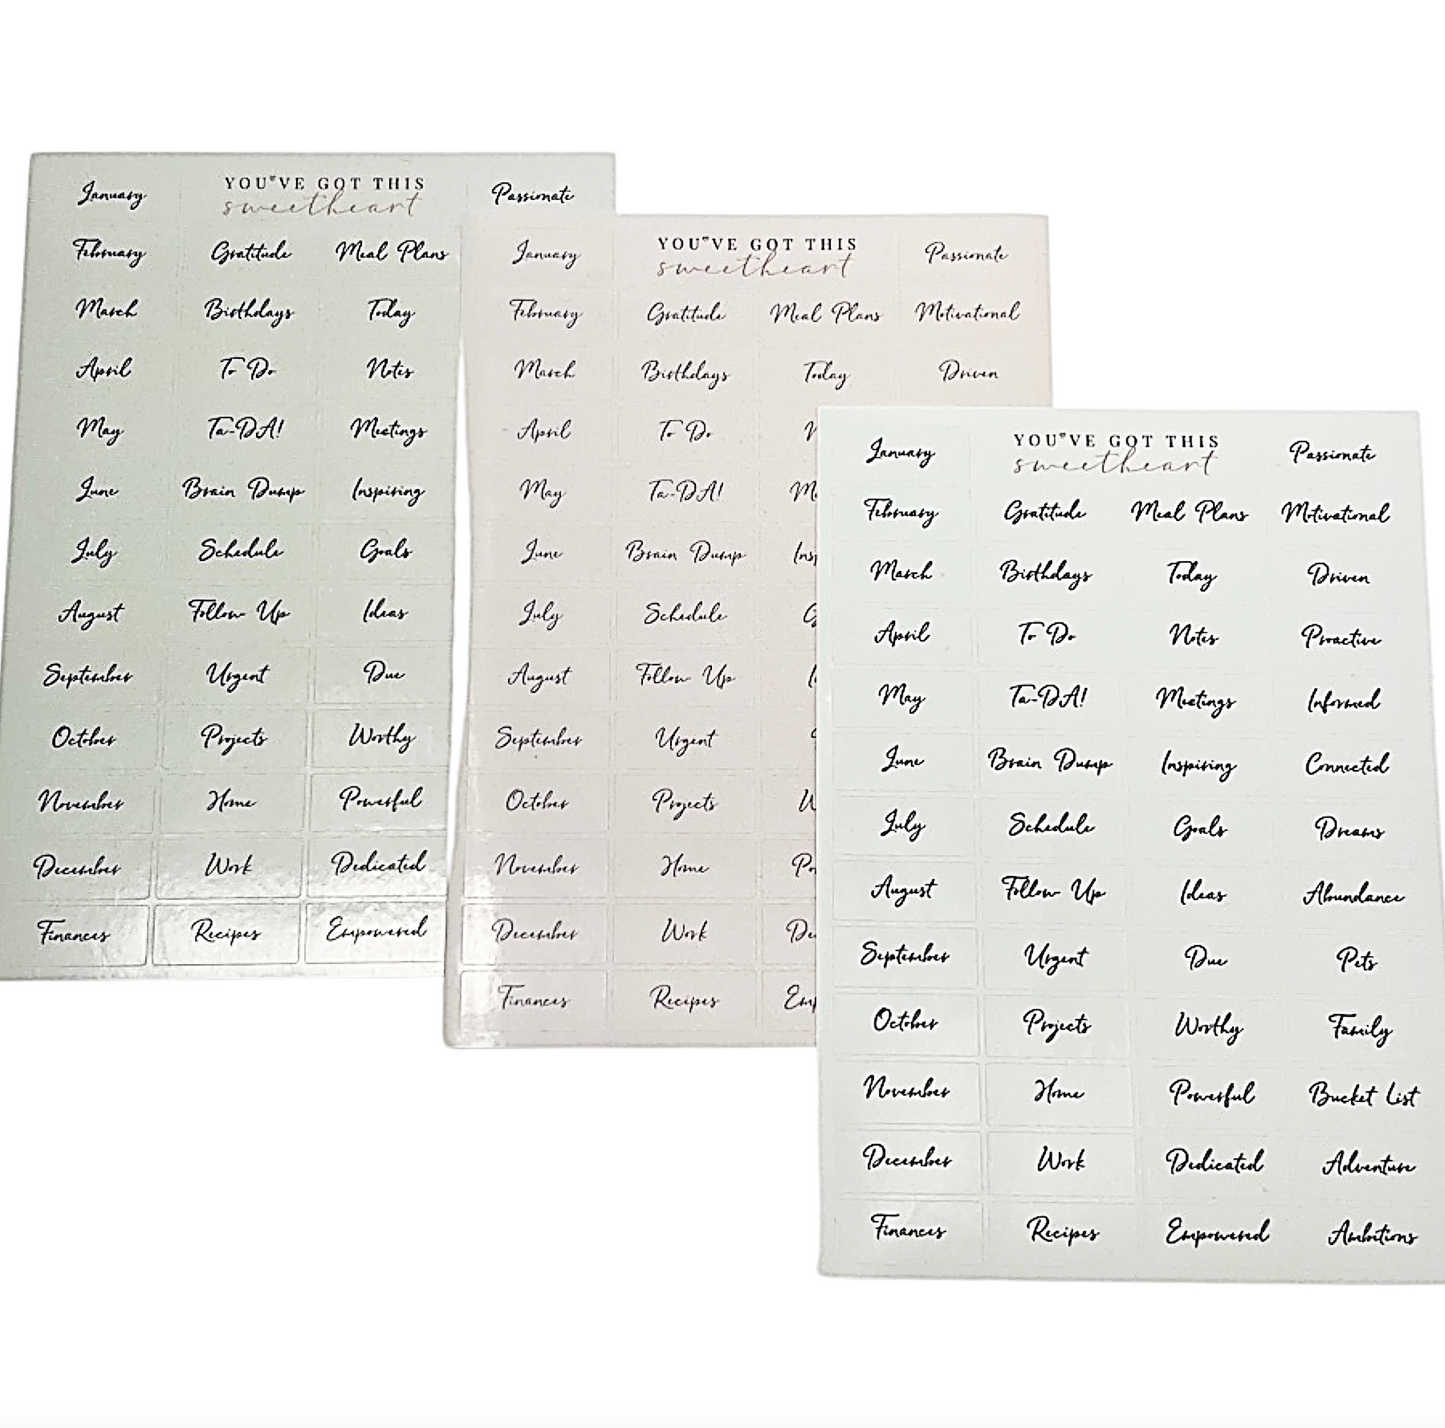 January YOU'VE GOT THIS Passionate
sweetheart
February Gratitude Meal Plans
March Birthdays Today
April To Do Notes
May Ta-DA! Meetings
June Brain Dump Inspiring
July Schedule Goals
August Follow Up Ideas
September Urgent Due
October Projects Worthy
November Home Powerful
December Work Dedicated
Finances Recipes Empowered
January YOU'VE GOT THIS Passionate
sweetheart
February Gratitude Meal Plans Motivational
March Birthdays Today Driven
April To Do
May Ta-DA!
June Brain Dump
July Schedule
August Follow Up
September Urgent
October Projects
November Home
December Work
Finances Recipes
January YOU'VE GOT THIS Passionate
sweetheart
February Gratitude Meal Plans Motivational
March Birthdays Today Driven
April To Do Notes Proactive
May Ta-DA! Meetings Informed
June Brain Dump Inspiring Connected
July Schedule Goals Dreams
August Follow Up Ideas Abundance
September Urgent Due Pets
October Projects Worthy Family
November Home Powerful Bucket List
December Work Dedicated Adventure
Finances Recipes Empowered Ambitions